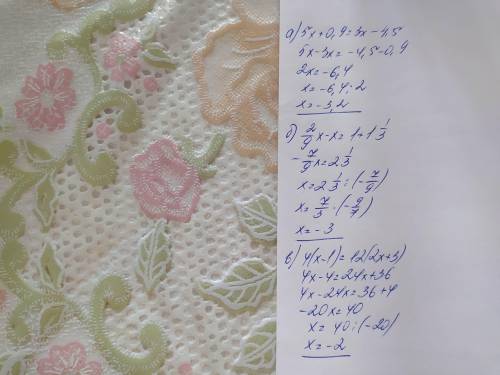 а) 5x+0,9=3x-4,5
5x-3x=-4,5-0,9
2x=-6,4
x=-6,4:2
x=-3,2
б) 2/9 x-x=1+1 1/3
-7/9 x=2 1/3
x=2 1/3:(-7/9)
x=7/3·(-9/7)
x=-3
в) 4(x-1)=12(2x+3)
4x-4=24x+36
4x-24x=36+4
-20x=40
x=40:(-20)
x=-2